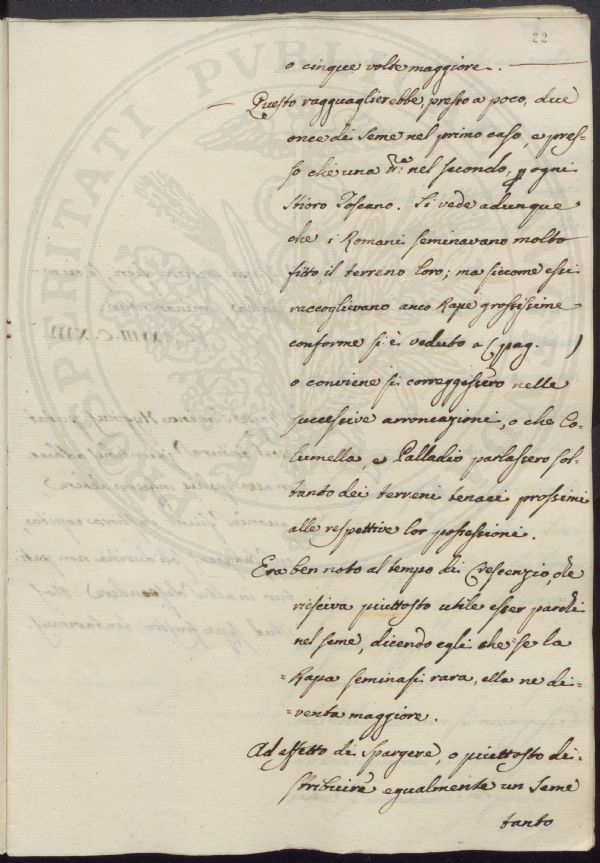 22
o cinque volte maggiore.
Questo ragguaglierebbe, presto a poco, due
once di Seme nel primo caso, e pres-
so che una nel secondo, p ogni
Stioro Toscano. Si vede adunque
che i Romani seminavano molto
fitto il terreno loro; ma siccome essi
raccoglievano anco Rape grossissime
conforme si è veduto a pag. )
o conviene si correggessero nelle
successive arroncazioni, o che Co-
lumella, e Palladio parlassero sol-
tanto dei terreni tenaci prossimi
alle respettive lor possessioni.
Era ben noto al tempo di Crescenzio, che
riesciva piuttosto utile esser parchi
nel seme, dicendo egli che =se la
=Rapa seminasi rara, ella ne di-
=venta maggiore.
Ad effetto di Spargere, o piuttosto di-
stribuire egualmente un Seme
tanto
PUBLI